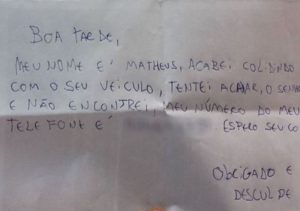 BOA TARDE,
MEU NOME E' MATHEUS, ACABEI COLIDINDO
COM O SEU VEICULO, TENTEI ACHAR, O SENH
E NÃO ENCONTREI, MEU NÚMERO DO MEU
TELEFONE E' ESPERO SEU CO
OBRIGADO E
DESCULPE